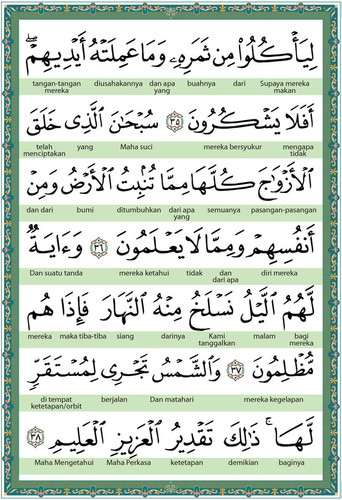 لِيَأْكُلُوا۟ مِن ثَمَرِهِۦ وَمَا عَمِلَتْهُ أَيْدِيهِمْ ۖ
Supaya mereka makan dari buahnya dan apa yang diusahakannya tangan-tangan mereka
أَفَلَا يَشْكُرُونَ ٣٥ سُبْحَـٰنَ ٱلَّذِى خَلَقَ
mengapa tidak mereka bersyukur Maha suci yang telah menciptakan
ٱلْأَزْوَٰجَ كُلَّهَا مِمَّا تُنۢبِتُ ٱلْأَرْضُ وَمِنْ
pasangan-pasangan semuanya dari apa yang ditumbuhkan bumi dan dari
أَنفُسِهِمْ وَمِمَّا لَا يَعْلَمُونَ ٣٦ وَءَايَةٌ
diri mereka dan dari apa tidak mereka ketahui Dan suatu tanda
لَّهُمُ ٱلَّيْلُ نَسْلَخُ مِنْهُ ٱلنَّهَارَ فَإِذَا هُم
bagi mereka malam Kami tanggalkan darinya siang maka tiba-tiba mereka
مُّظْلِمُونَ ٣٧ وَٱلشَّمْسُ تَجْرِى لِمُسْتَقَرٍّ
mereka kegelapan Dan matahari berjalan di tempat ketetapan/orbit
لَّهَا ۚ ذَٰلِكَ تَقْدِيرُ ٱلْعَزِيزِ ٱلْعَلِيمِ ٣٨
baginya demikian ketetapan Maha Perkasa Maha Mengetahui